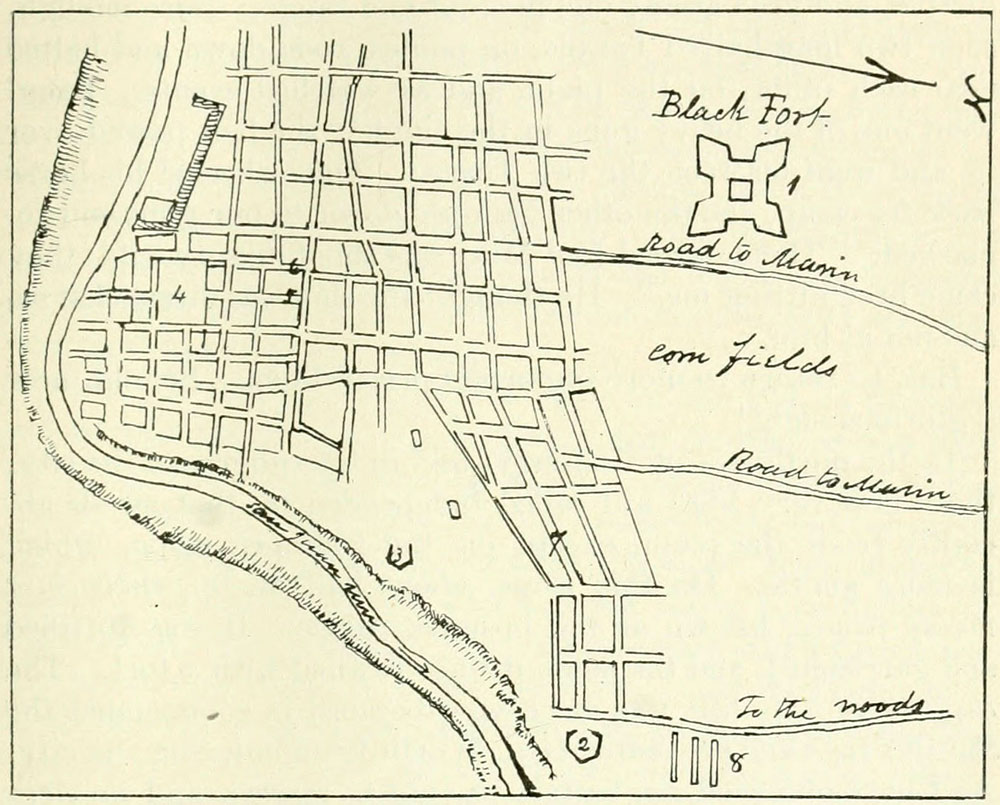 Black Fort
1
Road to Marin
6
4
5
corn fields
Road to Marin
San Juan River
3
7
To the woods
2
8